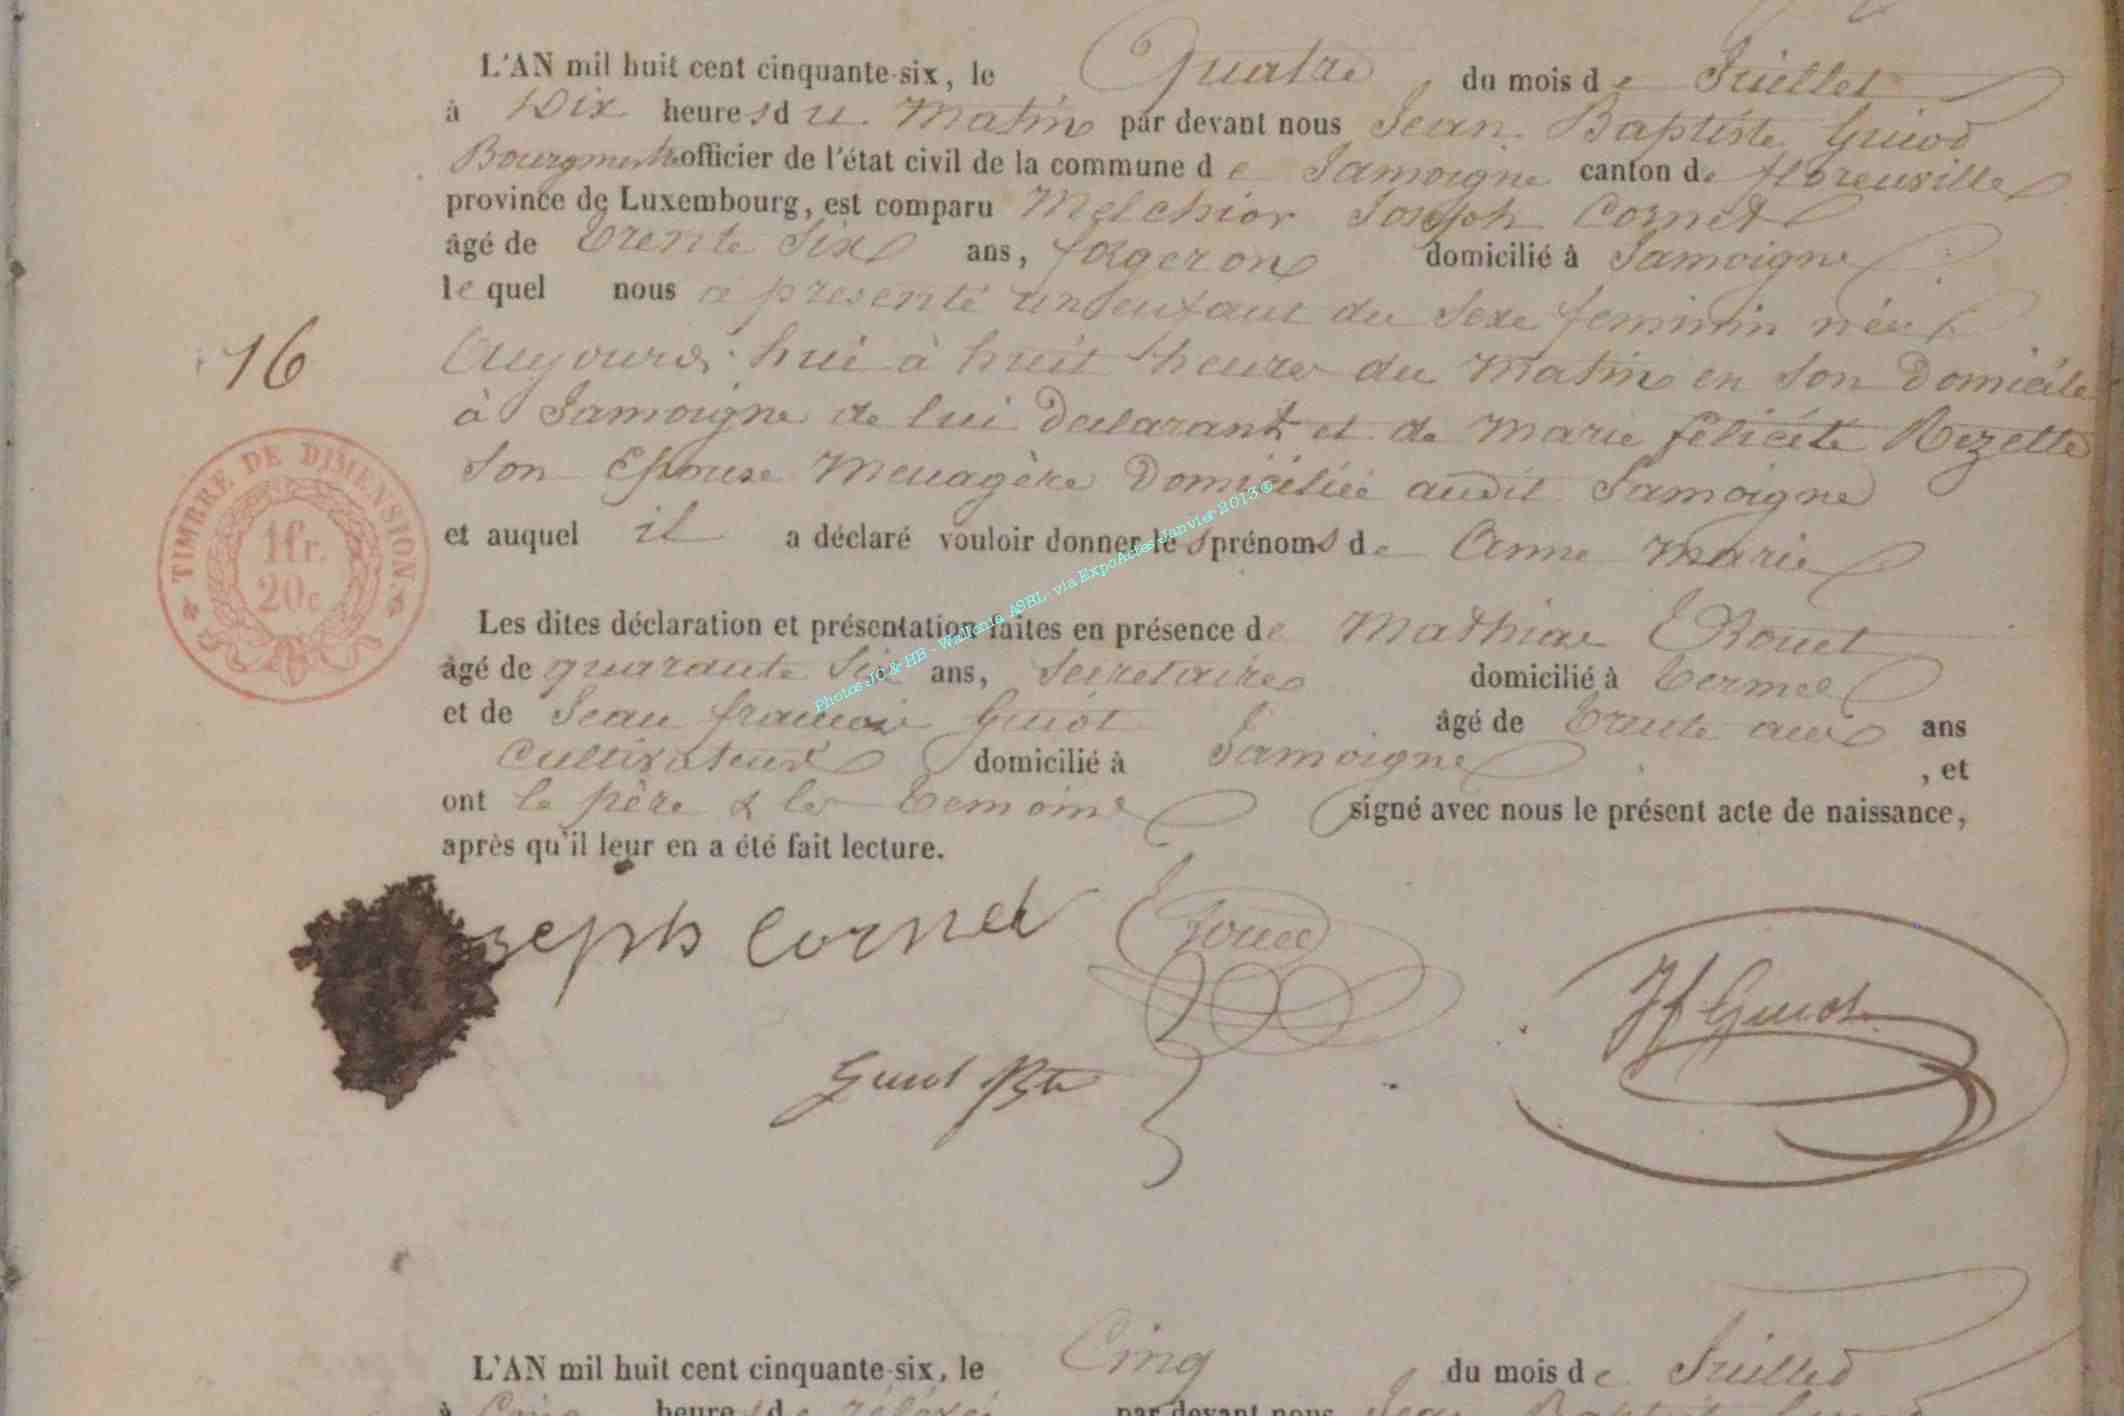 L'AN mil huit cent cinquante-six, le Quatre du mois de Juillet
à Dix heures du Matin par devant nous Jean Baptiste Guiot
Bourgmestre officier de l'état civil de la commune de Jamoigne canton de florenville
province de Luxembourg, est comparu Melchior Joseph Cornet
âgé de trente six ans, forgeron domicilié à Jamoigne
lequel nous a presenté un enfant du sexe feminin née
Aujourd'hui à huit heures du Matin en son Domicile
à Jamoigne de lui Declarant et de Marie félicité Rezette
son Epouse Menagère Domiciliée audit Jamoigne
16
TIMBRE DE DIMENSION
1fr.
20c
et auquel il a déclaré vouloir donner les prénoms de Anne Marie
Les dites déclaration et présentation faites en présence de Mathias
âgé de quarante six ans, Secretaire domicilié à termes
et de Jean francois Guiot âgé de trente ans
Cultivateur domicilié à Jamoigne , et
ont le père & les temoins signé avec nous le présent acte de naissance,
après qu'il leur en a été fait lecture.
Joseph Cornet
Jf Guiot
Guiot Bte
Photos JC & HB - Wallonia ASBL - via ExpoActes Janvier 2013 ©
L'AN mil huit cent cinquante-six, le Cinq du mois de Juillet
à Cinq heures de par devant nous Jean Baptiste Guiot